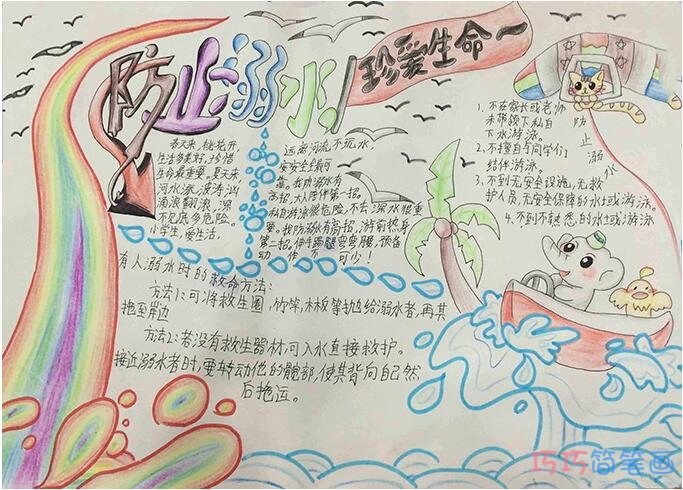 防止溺水
珍爱生命
春天来,桃花开,
生活多美好,珍惜
生命最重要。夏天来
河水涨,波涛汹
涌浪翻滚,深
不见底多危险。
小学生,爱生活,
远离河流不玩水,
安安全全最可
靠。我防溺水有
高招,大人陪伴第一招。
私自游泳很危险,不去深水很重
要。我防溺水有高招,游前热身
第二招。伸手踢腿弯弯腰,预备
动作不可少!
1、不在家长或老师
未带领下私自
下水游泳。
2、不擅自与同学们
结伴游泳。
3、不到无安全设施,无救
护人员,无安全保障的水土或游泳。
4、不到不熟悉的水土或游泳
防止溺水
有人溺水时的救命方法:
方法1:可将救生圈,竹竿,木板等抛给溺水者,再其
拖至岸边
方法2:若没有救生器材,可入水直接救护。
接近溺水者时,要转动他的髋部,使其背向自己然
后拖运。
巧巧简笔画